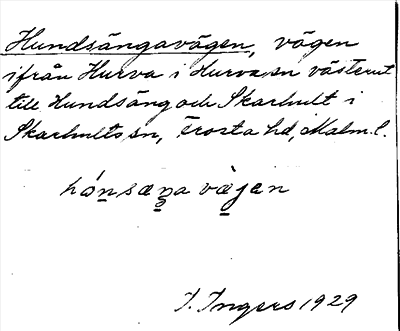 Hundsängavägen, vägen
ifrån Hurva i Hurva sn västerut
till Hundsäng och Skarhult i
Skarhults sn, Frosta hd, Malm. l.
hón̲sæŋa vàj̲ən
I. Ingers 1929